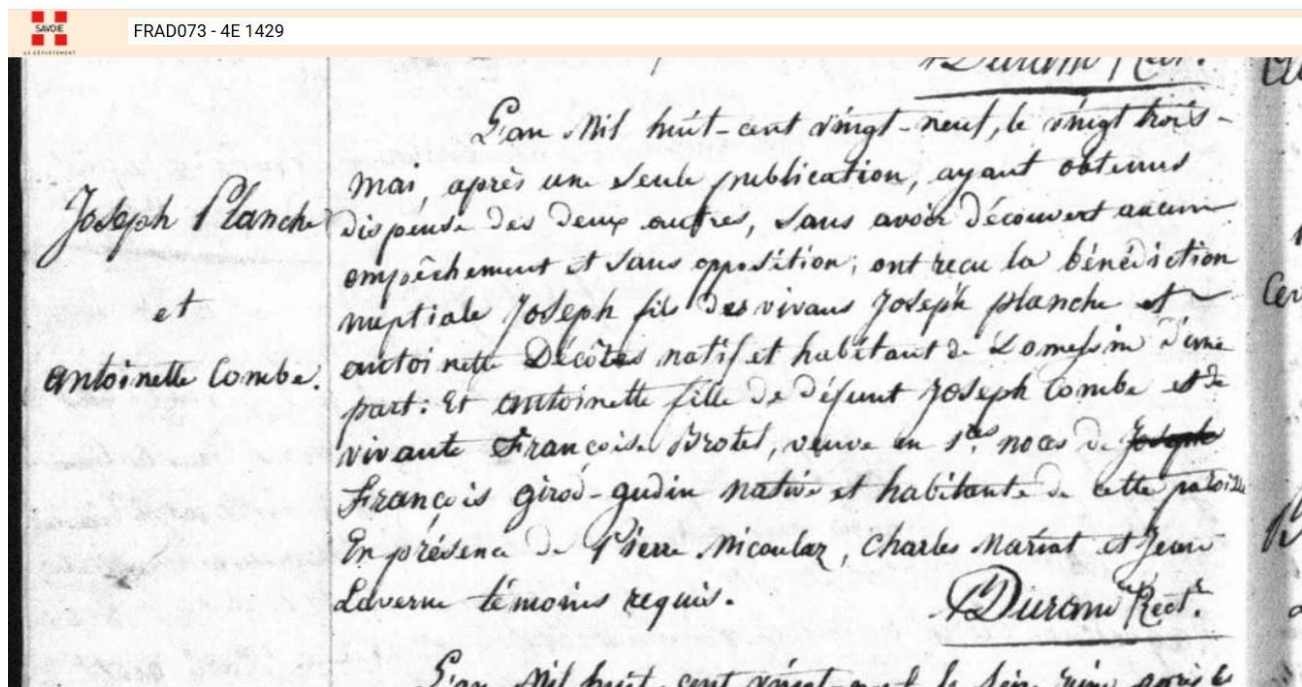 SAVOIE
LE DÉPARTEMENT
FRAD073 - 4E 1429
Durand Rect.
L'an Mil huit-cent vingt-neuf, le vingt trois-
mai, après une seule publication, ayant obtenus
dispense des deux autres, sans avoir découvert aucun
empêchement et sans opposition; ont recu la bénédiction
nuptiale Joseph fils des vivans Joseph planche et
antoinette Décôtes natif et habitant de Domessin d'une
part: Et antoinette fille de défunt Joseph Combe et de
vivante Françoise Brotel, veuve en 1res noces de Joseph
François girod-gudin native et habitante de cette paroisse
En présence de Pierre Nicoulaz, Charles Mariat et Jean
Laverne témoins requis.
Durand Rect.
Joseph Planche
et
antoinette Combe.
L'an Mil huit-cent vingt-neuf le